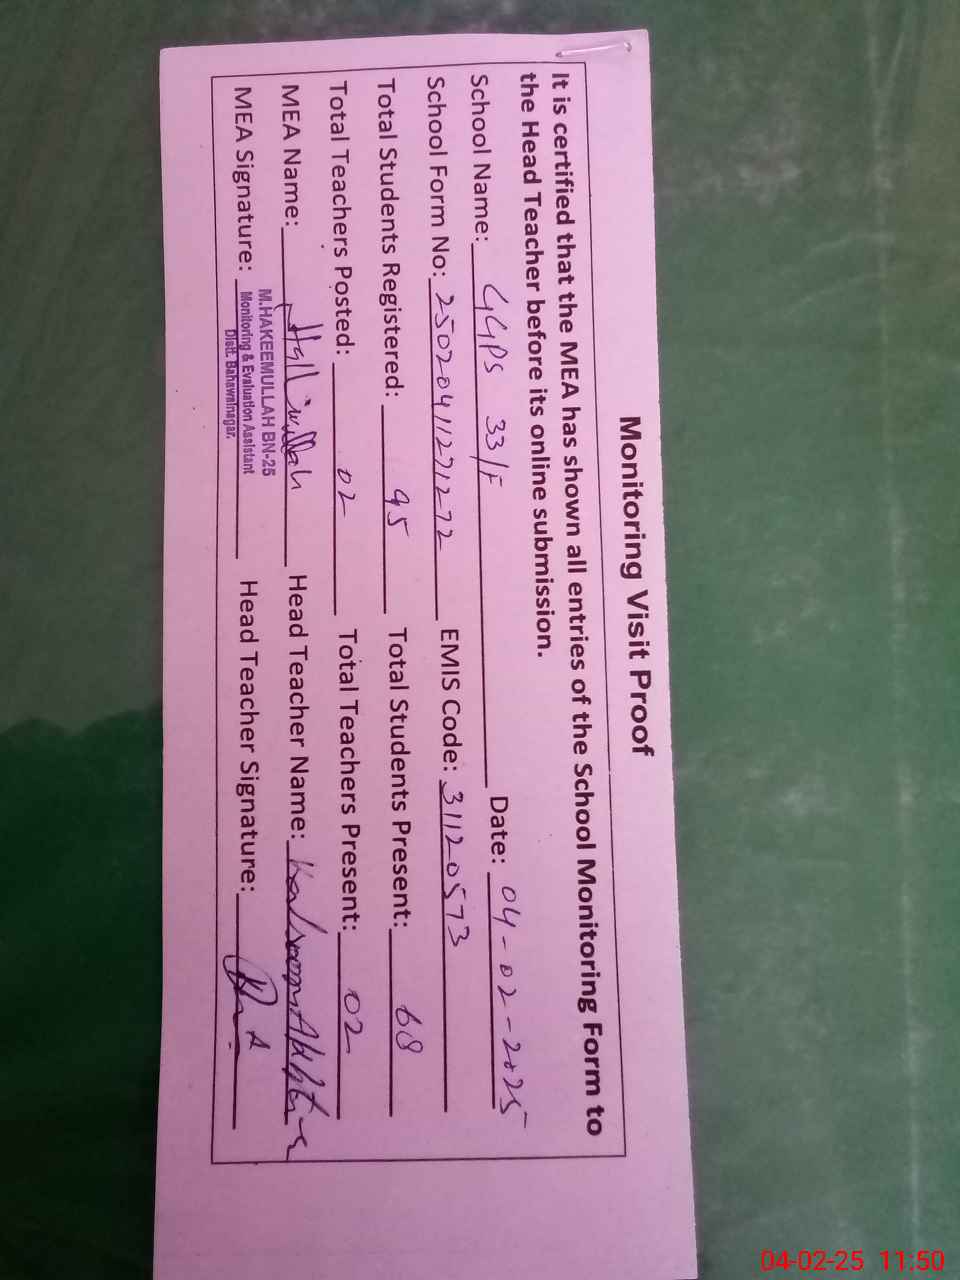 Monitoring Visit Proof
It is certified that the MEA has shown all entries of the School Monitoring Form to
the Head Teacher before its online submission.
School Name: GGPS 33/F Date: 04-02-2025
School Form No: 25020411271272 EMIS Code: 31120573
Total Students Registered: 95 Total Students Present: 68
Total Teachers Posted: 02 Total Teachers Present: 02
MEA Name: Head Teacher Name: Kalsoom Akhtar
MEA Signature: Head Teacher Signature:
M.HAKEEMULLAH BN-25
Monitoring & Evaluation Assistant
Distt. Bahawalnagar.
04-02-25 11:50